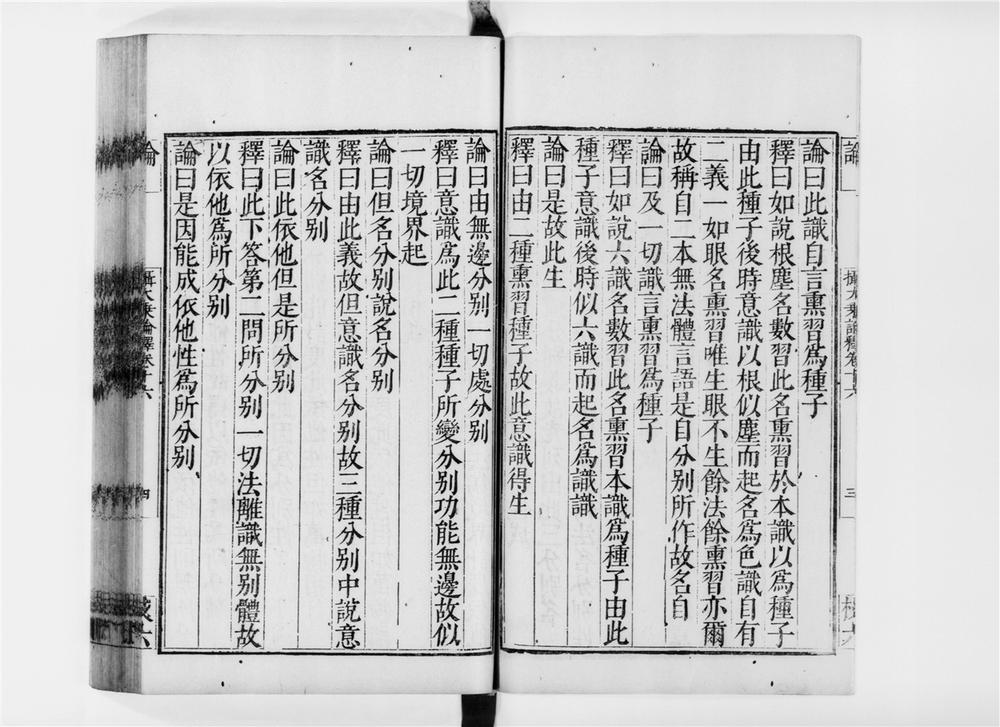 論曰此識自言熏習為種子
釋曰如說根塵名數習此名熏習於本識以為種子
由此種子後時意識以根似塵而起名為色識自有
二義一如眼名熏習唯生眼不生餘法餘熏習亦爾
故稱自二本無法體言語是自分別所作故名自
論曰及一切識言熏習為種子
釋曰如說六識名數習此名熏習本識為種子由此
種子意識後時似六識而起名為識識
論曰是故此生
釋曰由二種熏習種子故此意識得生
論曰由無邊分別一切處分別
釋曰意識為此二種種子所變分別功能無邊故似
一切境界起
論曰但名分別說名分別
釋曰由此義故但意識名分別故三種分別中說意
識名分別
論曰此依他但是所分別
釋曰此下答第二問所分別一切法離識無別體故
以依他為所分別
論曰是因能成依他性為所分別
論
攝大乘論釋卷十六
四